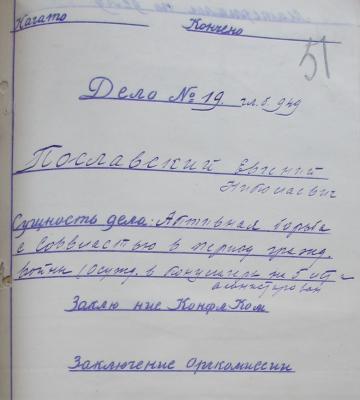 Начато Кончено
51
Дело № 19 гл. б. 949
Пославский Евгений
Николаевич
Сущность дела: Активная борьба
с Соввластью в период гражд.
войны (осужд. в на 5 лет и
амнистирован
Заклю ние Конфл Ком
Заключение Оргкомиссии